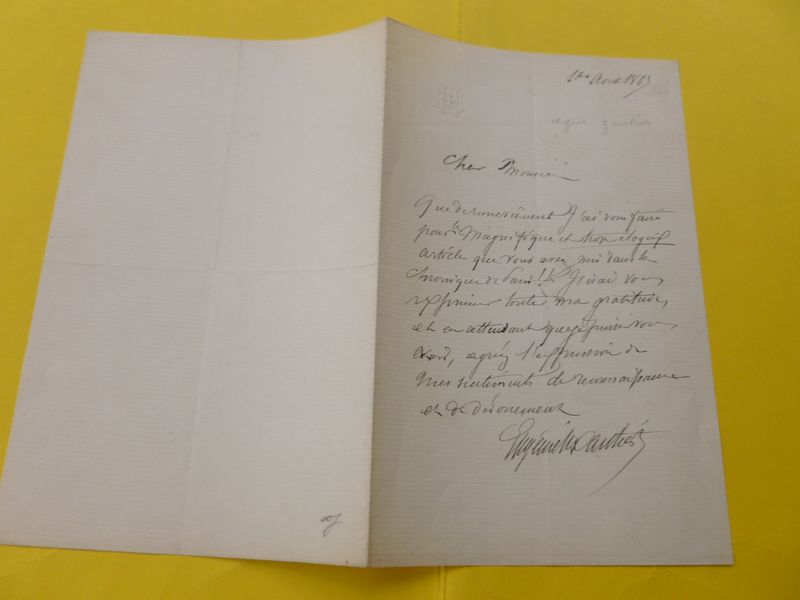 1er Avril 1863
gautier
Cher Monsieur
Que de remerciement j'ai vous faire
pour le Magnifique et trop elogieux
article que vous avez mis dans la
Chronique de Paris!! J'irai vous
exprimer toute ma gratitude,
et en attendant que je puisse vous
voir, agréez l'expression de
mes sentiments de reconnaissance
et de dévouement
Eugène Gautier